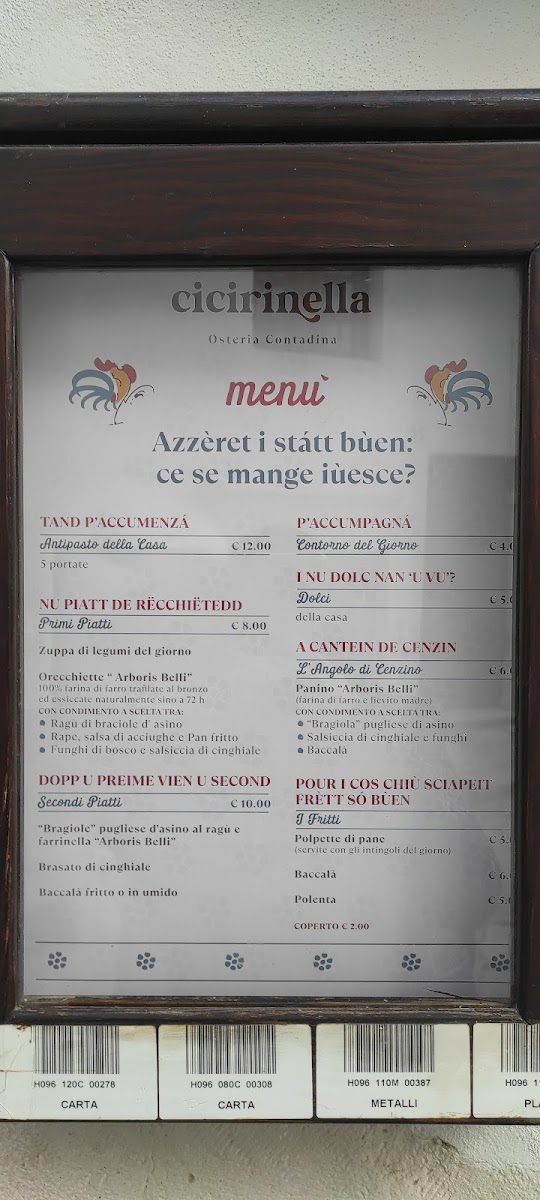 cicirinella
Osteria Contadina
menù
Azzèret i státt bùen:
ce se mange iùesce?
TAND P'ACCUMENZÁ
Antipasto della Casa € 12.00
5 portate
NU PIATT DE RËCCHIËTEDD
Primi Piatti € 8.00
Zuppa di legumi del giorno
Orecchiette " Arboris Belli"
100% farina di farro trafilate al bronzo
ed essiccate naturalmente sino a 72 h
CON CONDIMENTO A SCELTA TRA:
● Ragù di braciole d' asino
● Rape, salsa di acciughe e Pan fritto
● Funghi di bosco e salsiccia di cinghiale
DOPP U PREIME VIEN U SECOND
Secondi Piatti € 10.00
"Bragiole" pugliese d'asino al ragù e
farrinella "Arboris Belli"
Brasato di cinghiale
Baccalà fritto o in umido
P'ACCUMPAGNÁ
Contorno del Giorno € 4.0
I NU DOLC NAN 'U VU'?
Dolci € 5.0
della casa
A CANTEIN DE CENZIN
L'Angolo di Cenzino € 6.0
Panino "Arboris Belli"
(farina di farro e lievito madre)
CON CONDIMENTO A SCELTA TRA:
● "Bragiola" pugliese di asino
● Salsiccia di cinghiale e funghi
● Baccalà
POUR I COS CHIÙ SCIAPEIT
FRÈTT SÓ BÙEN
I Fritti
Polpette di pane € 5.
(servite con gli intingoli del giorno)
Baccalà € 6.
Polenta € 5.
COPERTO € 2.00
H096 120C 00278
CARTA
H096 080C 00308
CARTA
H096 110M 00387
METALLI
H096 1
PL